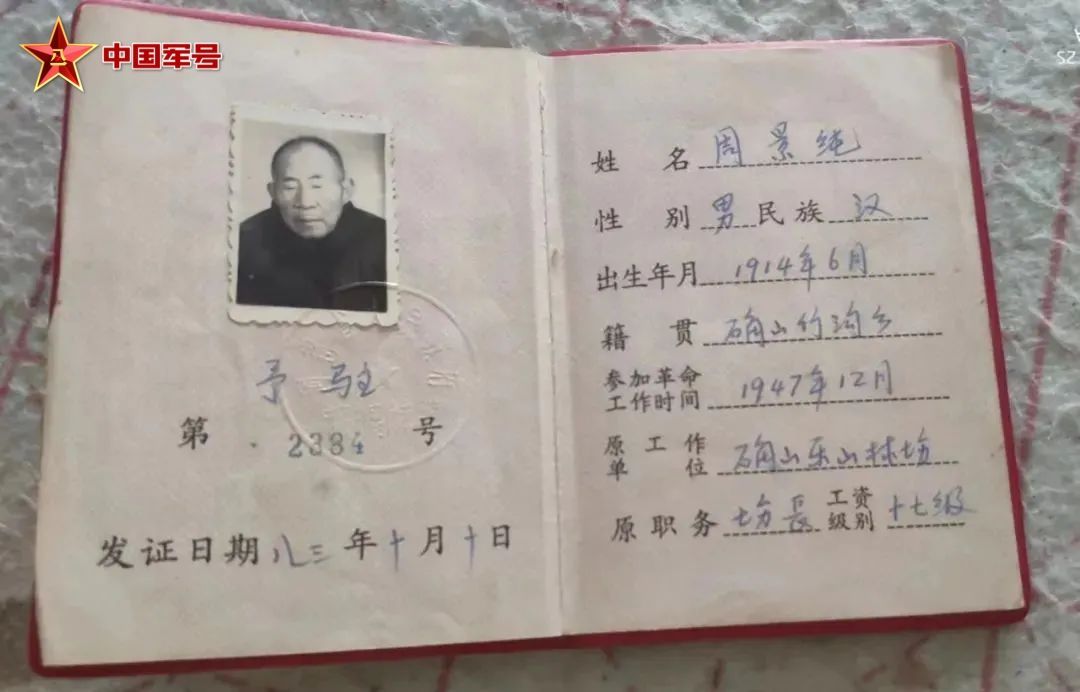 中国军号
SZ
予 驻
第 . 2384 号
发证日期 八三 年 十 月 十 日
姓 名 周景纯
性 别 男 民族 汉
出生年月 1914年6月
籍 贯 确山竹沟乡
参加革命
工作时间 1947年12月
原 工 作
单 位 确山乐山林场
原职务 场長 工资
级别 十七级